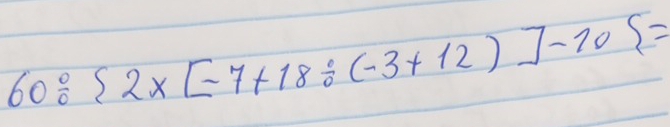 60÷{2×[-7+18÷(-3+12)]-10{=